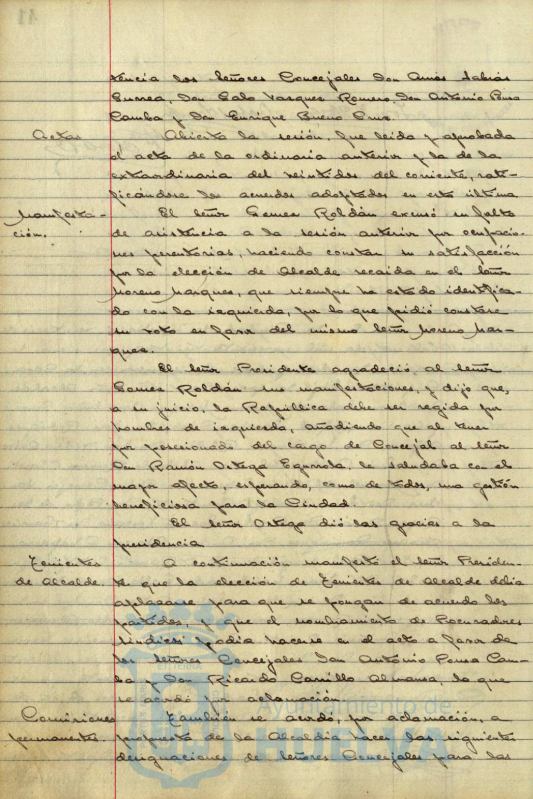 tencia los Señores Concejales Don Amós Sabrás
Gurrea, Don Galo Vazquez Romero, Don Antonio Pousa
Camba y Don Enrique Bueno Cruz.
Actas
Abierta la sesión, fué leida y aprobada
el acta de la ordinaria anterior y la de la
extraordinaria del veintidos del corriente, rati-
ficándose los acuerdos adoptados en esta última
Manifesta-
ción.
El Señor Gomez Roldán excusó su falta
de asistencia a la sesión anterior por ocupacio-
nes perentorias, haciendo constar su satisfacción
por la elección de Alcalde recaida en el Señor
Moreno Marquez, que siempre ha estado identifica-
do con la izquierda, por lo que pidió constase
su voto en favor del mismo Señor Moreno Mar-
quez.
El Señor Presidente agradeció al Señor
Gomez Roldán sus manifestaciones, y dijo que,
a su juicio, la República debe ser regida por
hombres de izquierda, añadiendo que al tener
por posesionado del cargo de Concejal al Señor
Don Ramón Ortega Ezquerrota, le saludaba con el
mayor afecto, esperando, como de todos, una gestión
beneficiosa para la Ciudad.
El Señor Ortega dió las gracias a la
presidencia
Tenientes
de Alcalde.
A continuación manifestó el Señor Presiden-
te que la elección de Tenientes de Alcalde debia
aplazarse para que se pongan de acuerdo los
partidos, y que el nombramiento de Procuradores
Sindicos podia hacerse en el acto a favor de
los Señores Concejales Don Antonio Pousa Cam-
ba y Don Ricardo Carrillo Almansa, lo que
se acordó por aclamación.
Comisiones
permanentes.
También se acordó, por aclamación, a
propuesta de la Alcaldia hacer las siguientes
designaciones de Señores Concejales para las
Ayuntamiento de
HUELVA